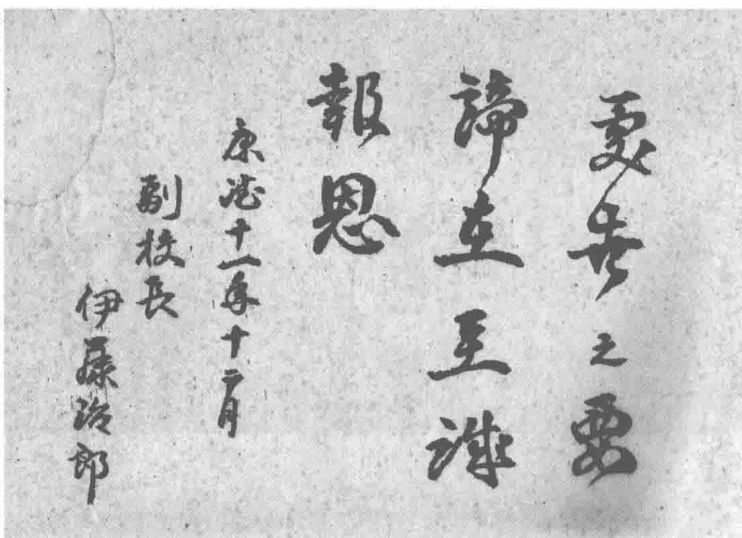 處世之要
諦在至誠
報恩
康德十一年十二月
副校長
伊藤治郎